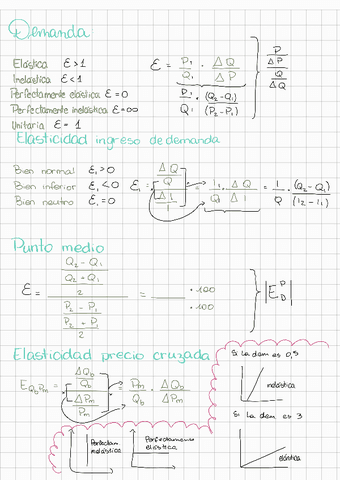 Demanda
Elástica ε > 1
Inelástica ε < 1
Perfectamente elástica ε = 0
Perfectamente inelástica ε = ∞
Unitaria ε = 1
ε = P₁ / Q₁ · ΔQ / ΔP
P₁ / Q₁ · (Q₂ - Q₁) / (P₂ - P₁)
P / ΔP
Q / ΔQ
Elasticidad ingreso de demanda
Bien normal ε₁ > 0
Bien inferior ε₁ < 0
Bien neutro ε₁ = 0
ε₁ = ΔQ / Q / ΔI / I = I₁ / Q₁ · ΔQ / ΔI = I / Q · (Q₂ - Q₁) / (I₂ - I₁)
Punto medio
ε = Q₂ - Q₁ / Q₂ + Q₁ / 2 / P₂ - P₁ / P₂ + P₁ / 2 = · 100 / · 100
|E P D|
Elasticidad precio cruzada
E Qb Pm = ΔQb / Qb / ΔPm / Pm = Pm / Qb · ΔQb / ΔPm
Perfectam
inelástica
Perfectamente
elástica
Si la dem es 0,5
inelástica
Si la dem es 3
elástica